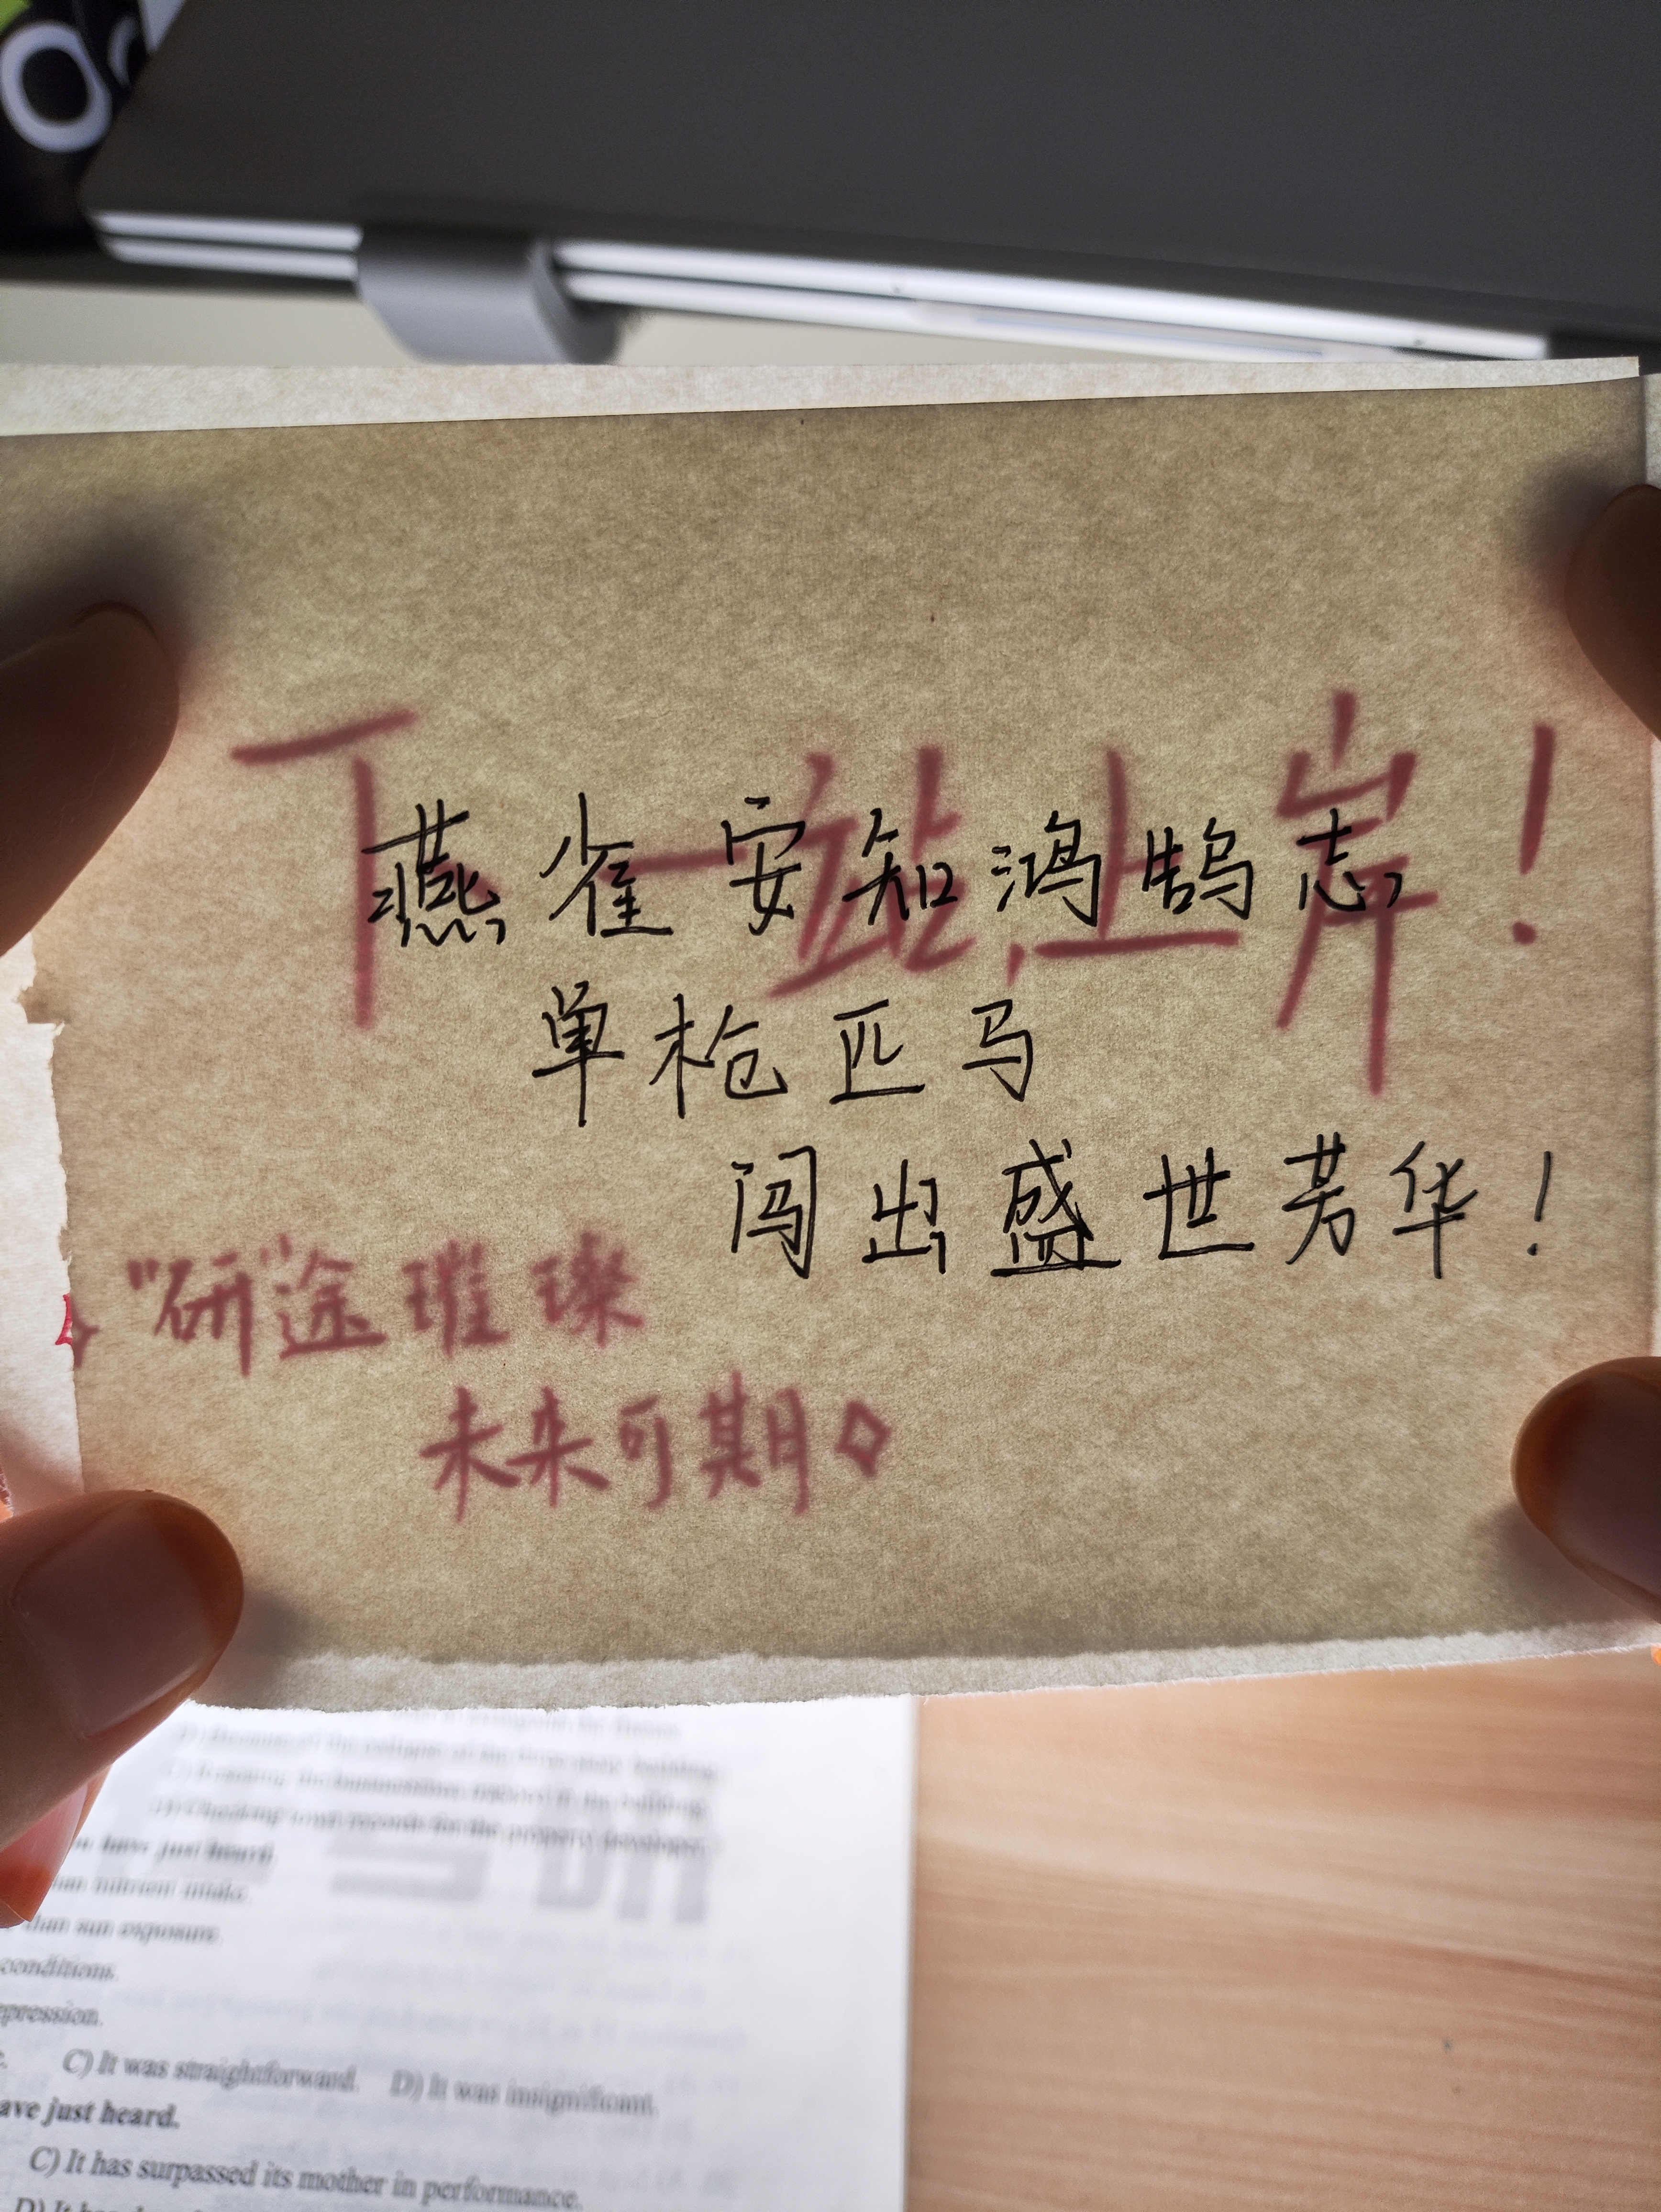 下一站,上岸!
燕雀安知鸿鹄志
单枪匹马
闯出盛世芳华!
"研"途璀璨
未来可期
have just heard.
than sun exposure.
conditions.
C) It was straightforward. D) It was insignificant.
have just heard.
C) It has surpassed its mother in performance.